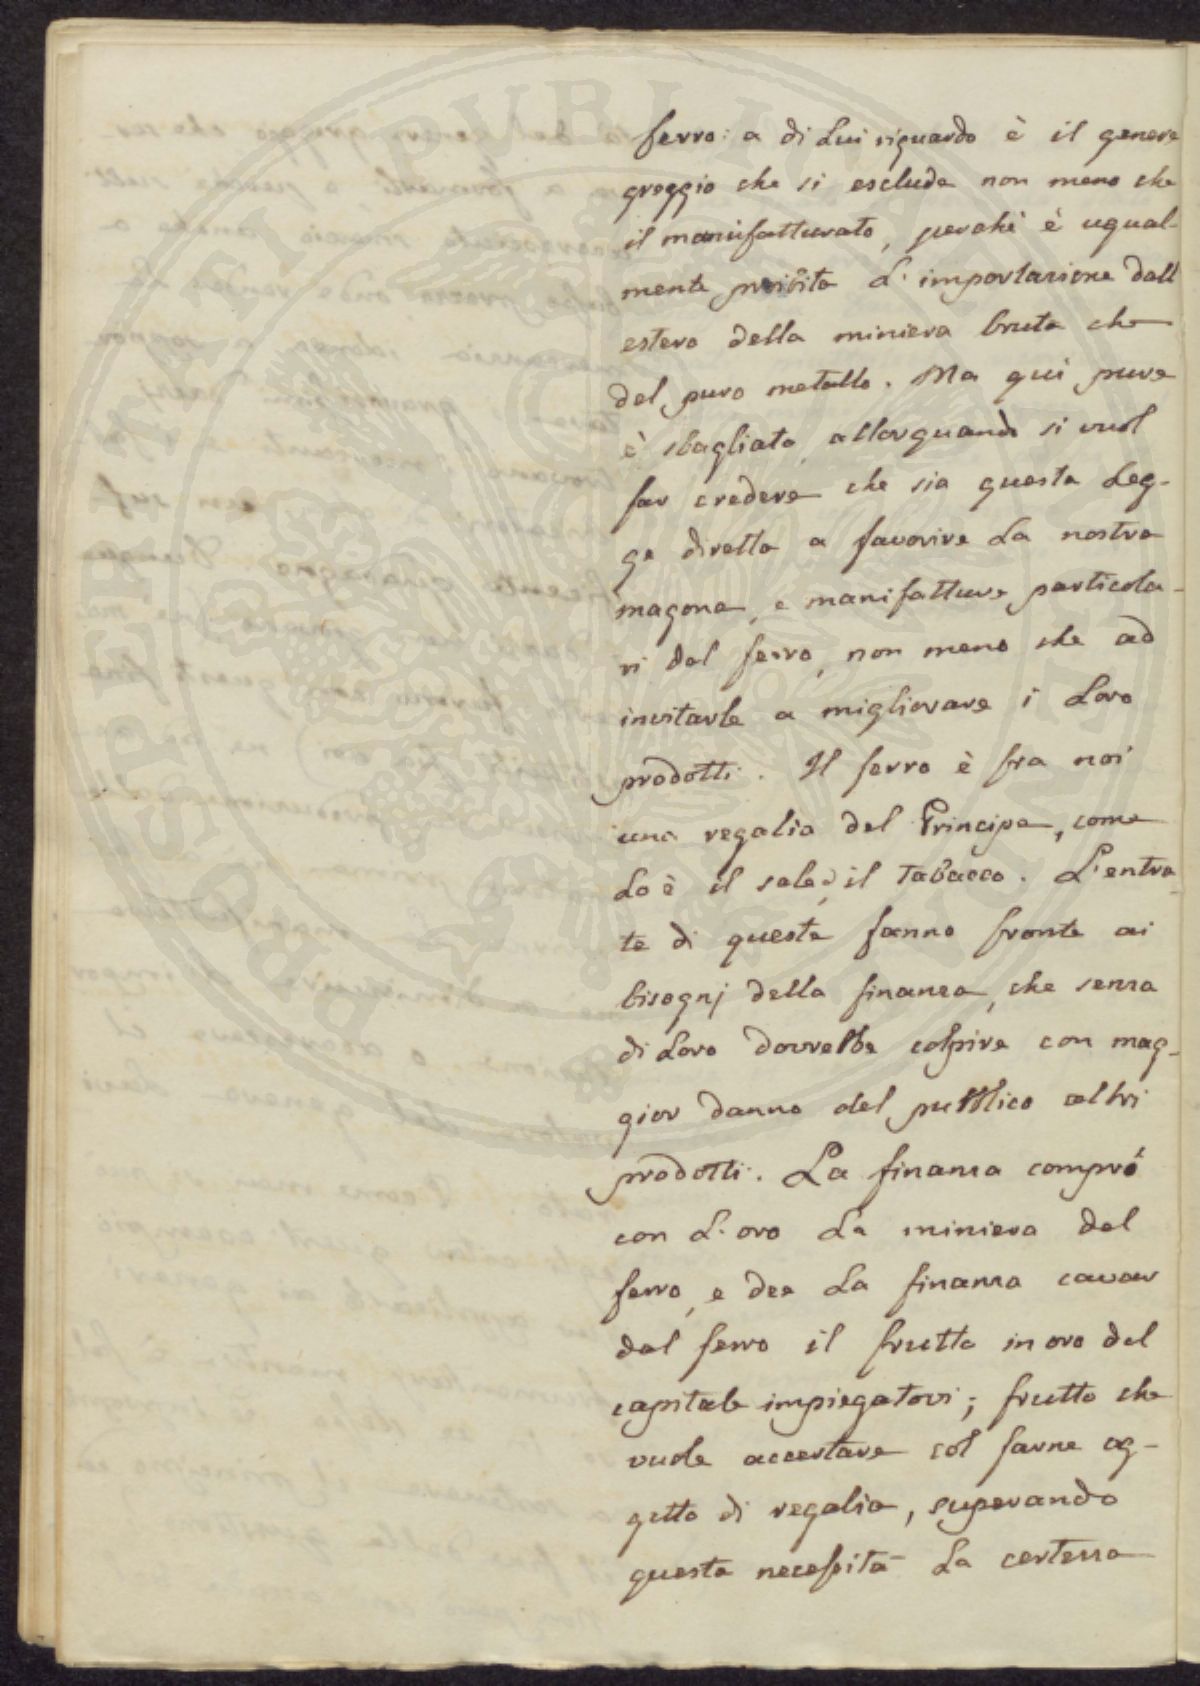 ferro: a di Lui riguardo è il genere
greggio che si esclude non meno che
il manifatturato, perchè è ugual-
mente proibita L'importazione dall
estero della miniera bruta che
del puro metallo. Ma qui pure
è sbagliato allorquando si vuol
far credere che sia questa Leg-
ge diretta a favorire La nostra
magona, e manifatture particola-
ri del ferro, non meno che ad
invitarle a migliorare i Loro
prodotti. Il ferro è fra noi
una regalia del Principe, come
Lo è il sale, il Tabacco. L'entra-
te di queste fanno fronte ai
bisognj della finanza, che senza
di Loro dovrebbe colpire con mag-
gior danno del pubblico altri
prodotti. La finanza comprò
con L'oro La miniera del
ferro, e dee La finanza cavar
dal ferro il frutto in oro del
capitale impiegatovi; frutto che
vuole accertare col farne og-
getto di regalia, superando
questa necessità La certezza
PROSPERITATI PUBLICAE